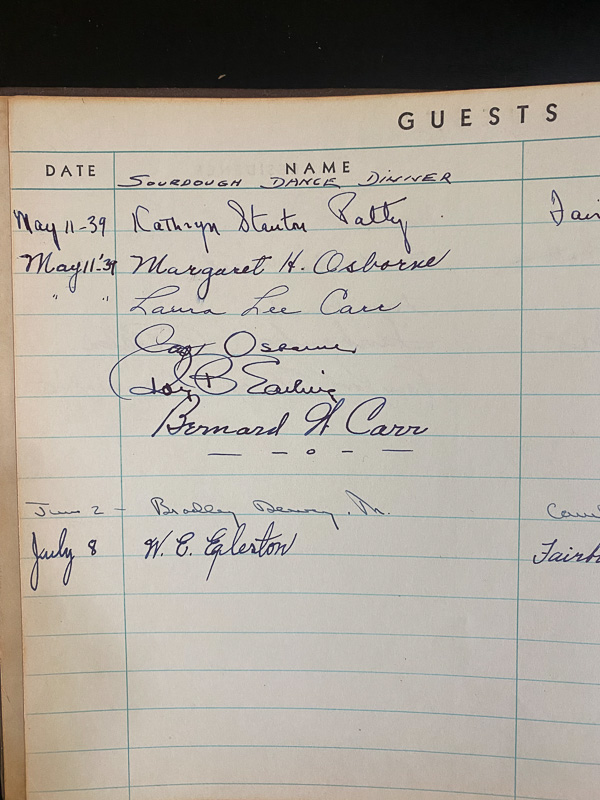 GUESTS
DATE NAME
SOURDOUGH DANCE DINNER
May 11-39 Kathryn Stanton Patty Fair
May 11-'39 Margaret H. Osborne
" " Laura Lee Carr
Osborne
Roy B Earling
Bernard W Carr
— - o - —
June 2 - Bradley Dewey, Jr. Camb
July 8 W. E. Egleston Fairb